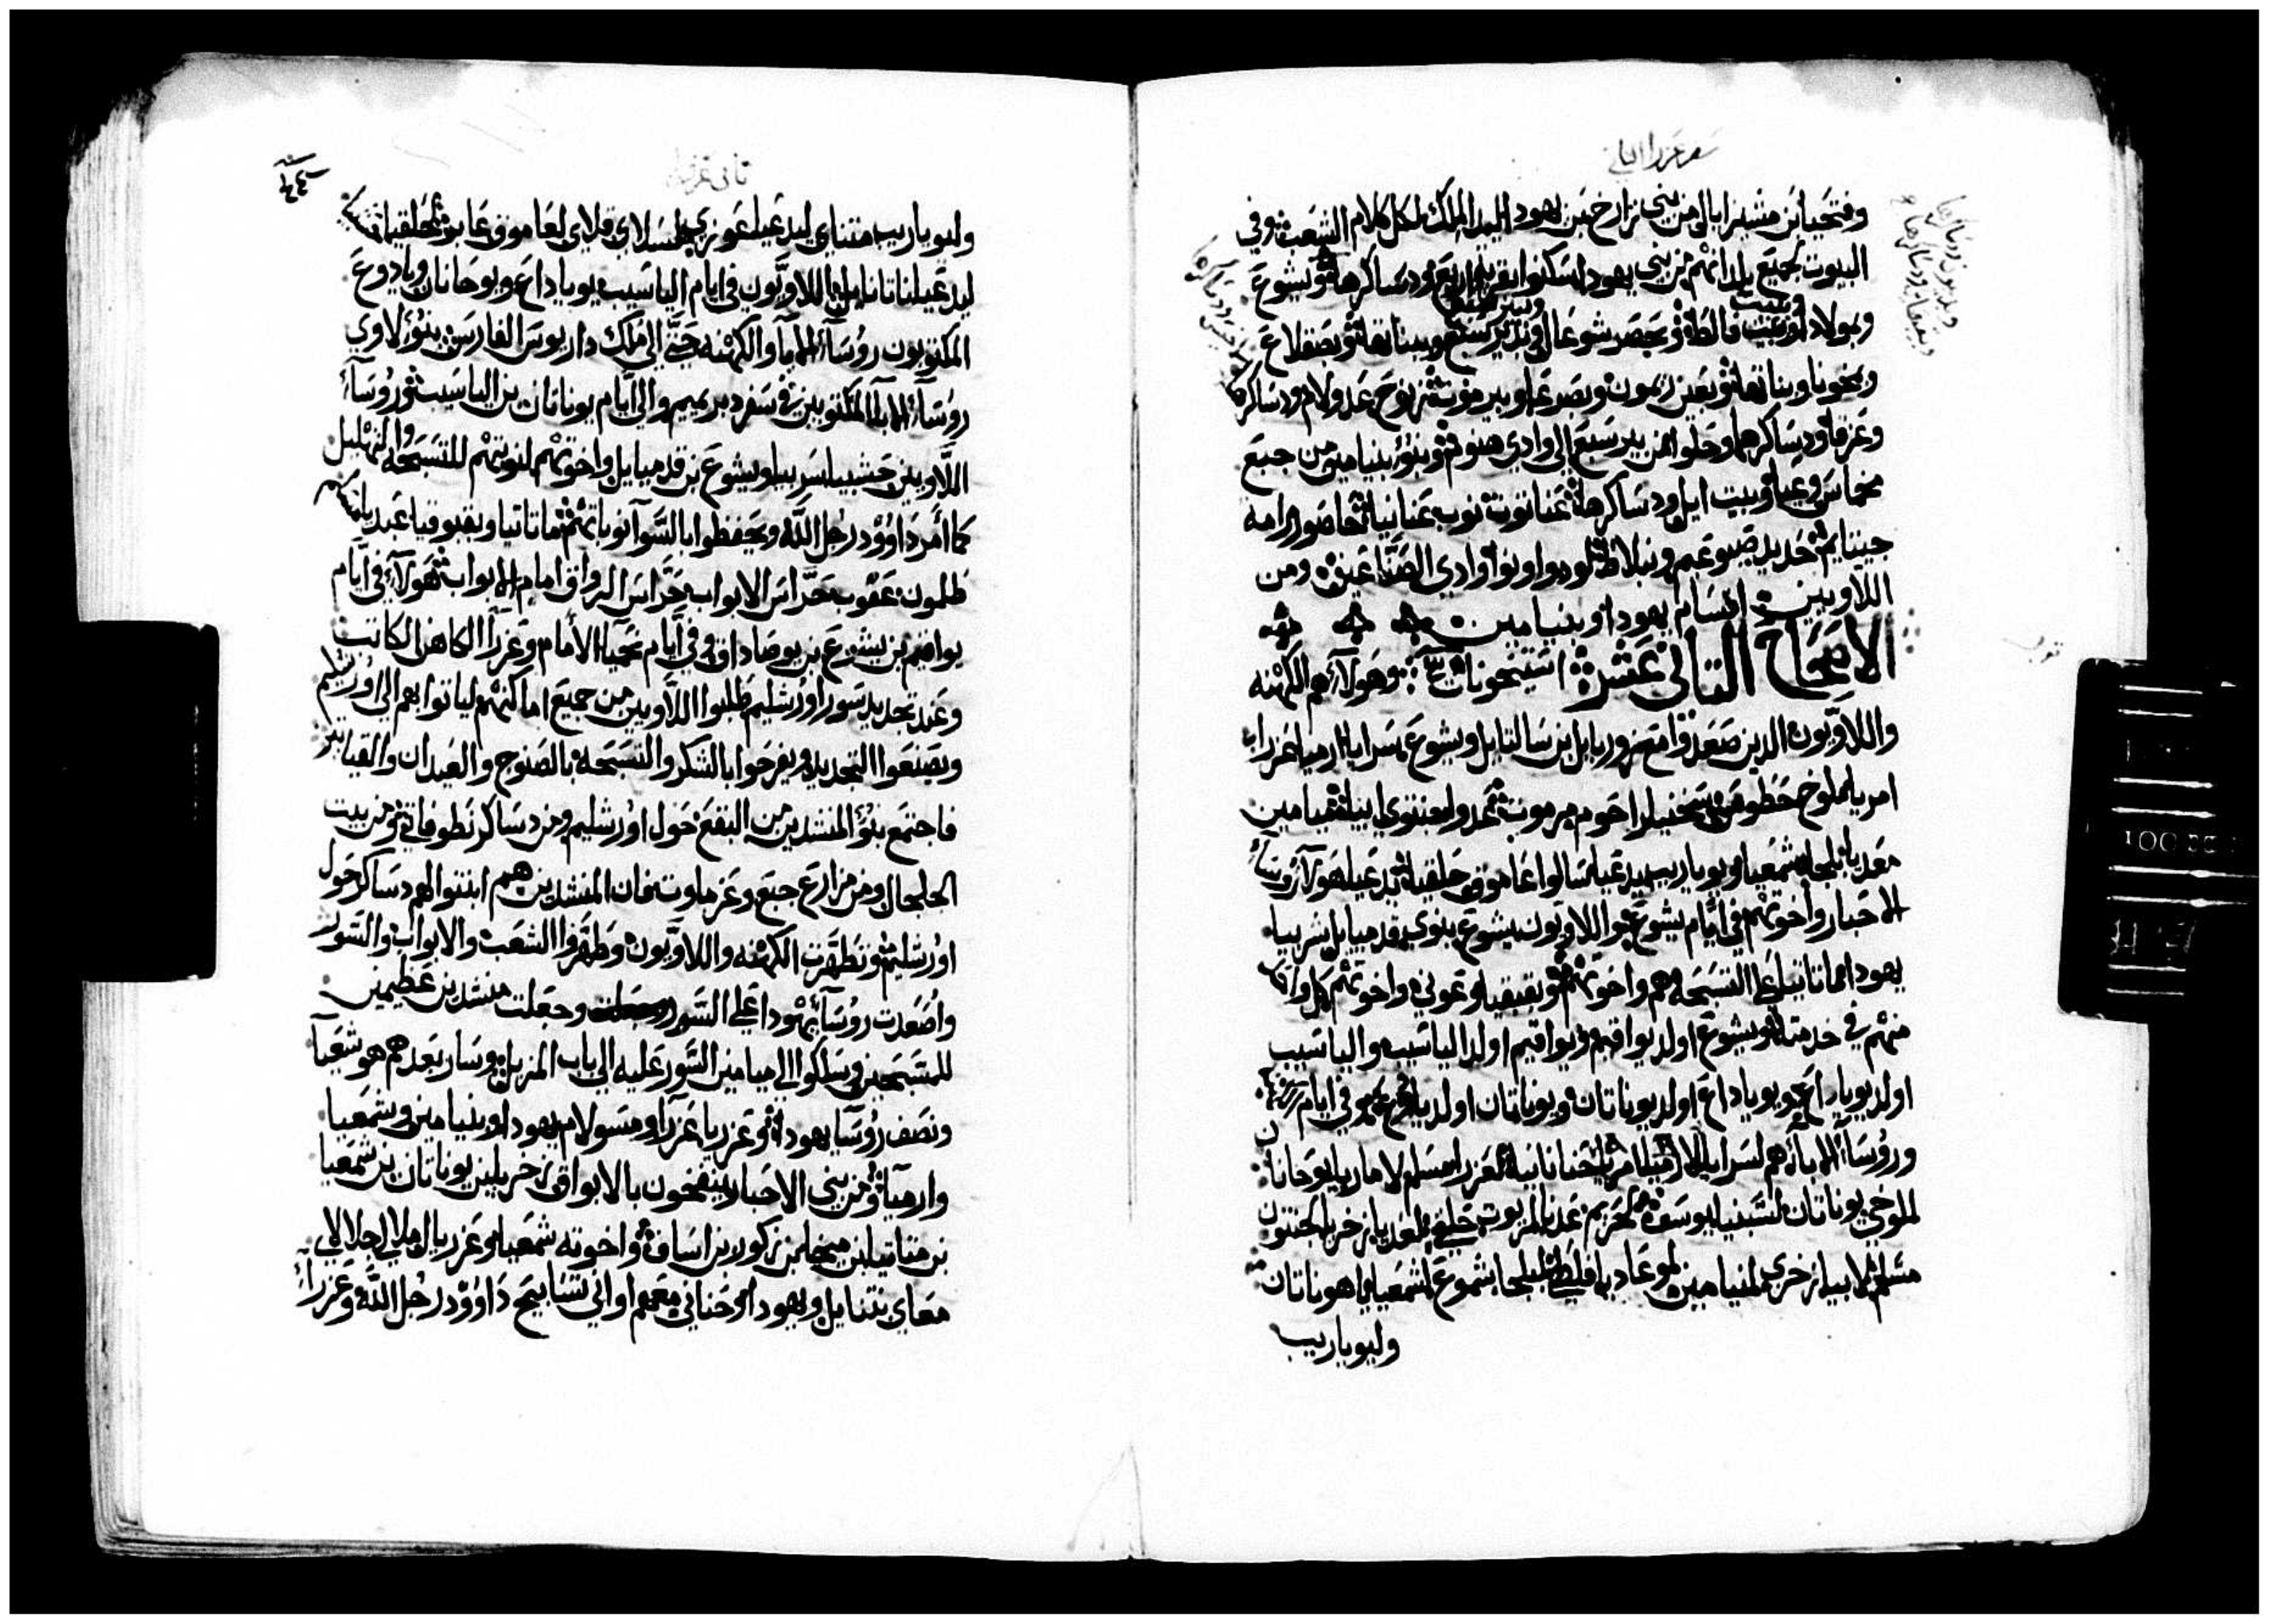 سفر عزرا الثاني
وفتحيا بن مشيزابال من بني زارخ بن يهودا ليد الملك لكل كلام الشعب وفي
البيوت لجميع بلدانهم من بني يهودا سكنوا بقرية اربع ودساكرها وبيشوع
وبمولادا وبيت فالط وبحصر شوعال وفي بير سبع وبيناتها وبصقلاع
وبمخونا وبناتها وبعين زيمون وبصرعا وبيرموت زنوح عدولام ودساكرها
وعزقا ودساكرهما وحلوا من بير سبع الى وادي هنوم وبنو بنيامين من جبع
مخماس وعيا وبيت ايل ودساكرها عناتوت نوب عنانيا حاصور رامه
جيتايم حديد صبوعيم ونبلاط لود واونوا وادي الصناعين ومن
اللاويين اقسام يهودا وبنيامين
الاصحاح الثاني عشر وهولاء هم الكهنه
واللاويون الدين صعدوا مع زوربابل بن سالتايل ويشوع سرايا ارميا عزرا
امريا ملوخ حطوش سخنيا راحوم مرموت عدوا جنتوي ابيا ميامين
معديا بلجا شمعيا ويوياريب يدعيا سالوا عاموق حلقيا يدعيا هولاء روسا
الاحبار واخوتهم في ايام يشوع واللاويون يشوع بنوي قدميايل شربيا
يهودا ماتانيا على التسبحه هم واخوتهم وبقبقيا وعوني واخوتهم كل واحد
منهم في خدمته ويشوع اولد يواقيم ويواقيم اولد الياشيب والياشيب
اولد يوياداع ويوياداع اولد يوناتان ويوناتان اولد يادوع وفي ايام يواقيم
وروسا الابا هم لسرايا لارميا حنانيا لعزرا مسلم لاماريا يوحانان
لملوخي يوناتان لشبنيا يوسف لحريم عدنا لمريوت حلقي لعديا زخريا لجنتون
مسلم لابيا زخري لمنيامين لموعاديا فلطي لبلجا شموع لشمعيا ياهوناتان
وليوياريب
ثاني عزرا
وليوياريب متناي ليدعيا عوزي لسلاي قلاي لعاموق عابر لحلقيا
ليدعيا ناتانايل اللاويون في ايام الياشيب يوياداع ويوحانان ويادوع
المكتوبون روسا الابا والكهنه حتى الى ملك داريوس الفارسي بنو لاوي
روسا الابا المكتوبين في سفر دبريميم والى ايام يوناتان بن الياشيب وروسا
اللاويين حشبيا سربيا ويشوع بن قدميايل واخوتهم لنوبتهم للتسبحه والتهليل
كما امر داوود رجل الله ويحفظوا بالسوا نوباتهم ماتانيا وبقبوقيا عبديا
طلمون عقوب حراس الابواب حراس الرواق امام الابواب هولاء في ايام
يواقيم بن يشوع بن يوصاداق وفي ايام نحميا الامام وعزرا الكاهن الكاتب
وعند تجديد سور اورشليم طلبوا اللاويين من جميع اماكنهم لياتوا بهم الى اورشليم
ويصنعوا التجديد ويفرحوا بالشكر والتسبحه بالصنوج والعيدان والقياتير
فاجتمع بنو المنشدين من البقع حول اورشليم ومن دساكر نطوفاتي ومن بيت
الجلجال ومن مزارع جبع وعزماوت فان المنشدين هم ابتنوا لهم دساكر حول
اورشليم وتطهرت الكهنه واللاويون وطهروا الشعب والابواب والسور
واصعدت روسا يهودا على السور وجعلت منشدين عظيمين
للمسبحين وسلكوا الى ميامين السور عليه الى باب المزبل وسار بعدهم هوشعيا
ونصف روسا يهودا وعزريا عزرا ومسولام يهودا وبنيامين وشمعيا
وارميا ومن بني الاحبار ينفخون بالابواق زخريا بن يوناتان بن شمعيا
بن متانيا بن ميخا بن زكور بن اساف واخوته شمعيا وعزريال ملالي جلالاي
معاي نتنايل ويهودا وحناني معهم اواني تسابيح داوود رجل الله وعزرا